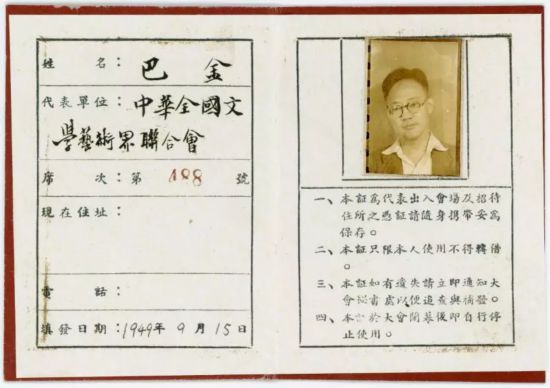 姓名：巴金
代表單位：中華全國文
學藝術界聯合會
席次：第 188 號
現在住址：
電話：
填發日期：1949年9月15日
一、本証為代表出入會場及招待
住所之憑証請隨身携帶妥為
保存。
二、本証只限本人使用不得轉借
。
三、本証如有遺失請立即通知大
會秘書處以便追查與補發。
四、本証於大會閉幕後即自行停
止使用。